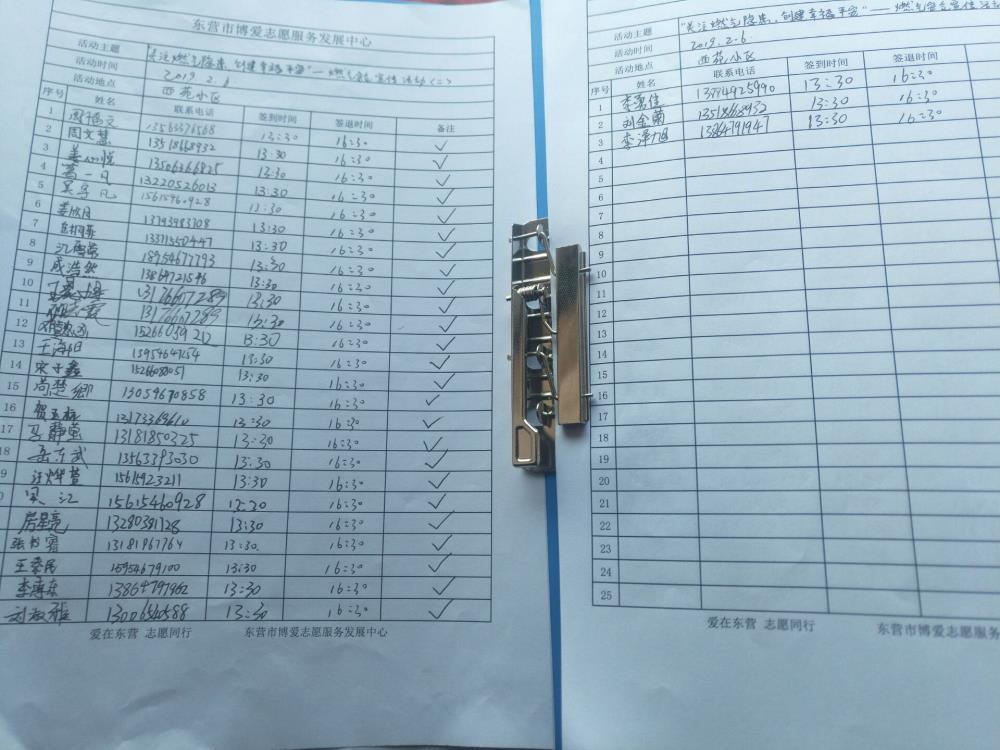 东营市博爱志愿服务发展中心
活动主题 "关注燃气隐患,创建幸福平安"—燃气安全宣传活动(二)
活动时间 2019.2.6
活动地点 西苑小区
序号 姓名 联系电话 签到时间 签退时间 备注
1 13563376568 13:30 16:30 ✓
2 周文慧 13518668932 13:30 16:30 ✓
3 姜心悦 13506266825 13:30 16:30 ✓
4 葛一凡 13220526013 13:30 16:30 ✓
5 15615960928 13:30 16:30 ✓
6 姜欣月 13793983708 13:30 16:30 ✓
7 13371550447 13:30 16:30 ✓
8 18954677793 13:30 16:30 ✓
9 成浩然 13864721546 13:30 16:30 ✓
10 13176667289 13:30 16:30 ✓
11 13:30 16:30 ✓
12 15266059212 13:30 16:30 ✓
13 王海旭 13:30 16:30 ✓
14 宋子鑫 13:30 16:30 ✓
15 尚楚卿 13054670858 13:30 16:30 ✓
16 13:30 16:30 ✓
17 马静萱 13181850325 13:30 16:30 ✓
18 岳东武 13563393030 13:30 16:30 ✓
9 汪烨萱 15615923211 13:30 16:30 ✓
0 吴江 15615460928 13:30 16:30 ✓
房星亮 13280381728 13:30 16:30 ✓
张书睿 13181967764 13:30. 16:30 ✓
王秦民 15954679100 13:30 16:30 ✓
李海东 13864797962 13:30 16:30 ✓
刘被雅 13006540588 13:30 16:30 ✓
爱在东营 志愿同行 东营市博爱志愿服务发展中心
活动主题 "关注燃气隐患,创建幸福平安"——燃气安全宣传活动
活动时间 2019.2.6
活动地点 西苑小区
序号 姓名 联系电话 签到时间 签退时间
1 李嘉佳 13784925990 13:30 16:30
2 刘金菊 13518668932 13:30 16:30
3 李泽旭 13864791947 13:30 16:30
4
5
6
7
8
9
10
11
12
13
14
15
16
17
18
19
20
21
22
23
24
25
爱在东营 志愿同行 东营市博爱志愿服务